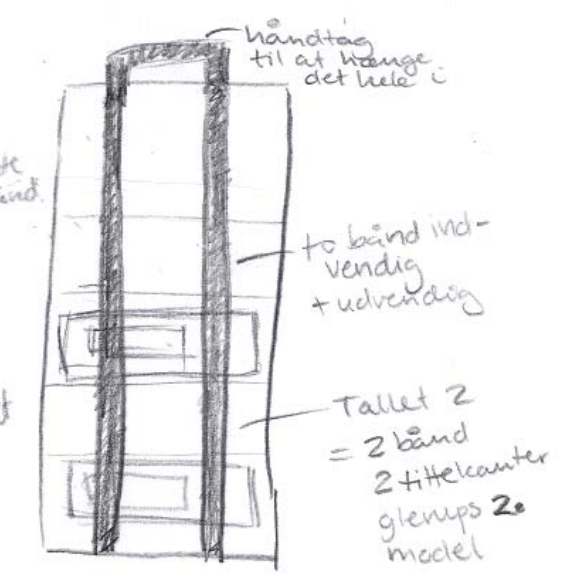 håndtag
til at hænge
det hele i
to bånd ind-
vendig
+ udvendig
Tallet 2
= 2 bånd
2 tittekanter
glerups 2.
model